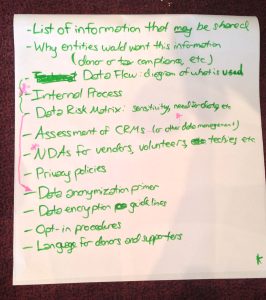 - List of information that may be shared
- Why entities would want this information
(donor or tax compliance, etc.)
- Data Flow: diagram of what is used
- Internal Process
- Data Risk Matrix: sensitivity, need for clarity etc
- Assessment of CRMs (or other data management)
- NDAs for vendors, volunteers, techies etc
- Privacy policies
- Data anonymization primer
- Data encryption guidelines
- Opt-in procedures
- Language for donors and supporters